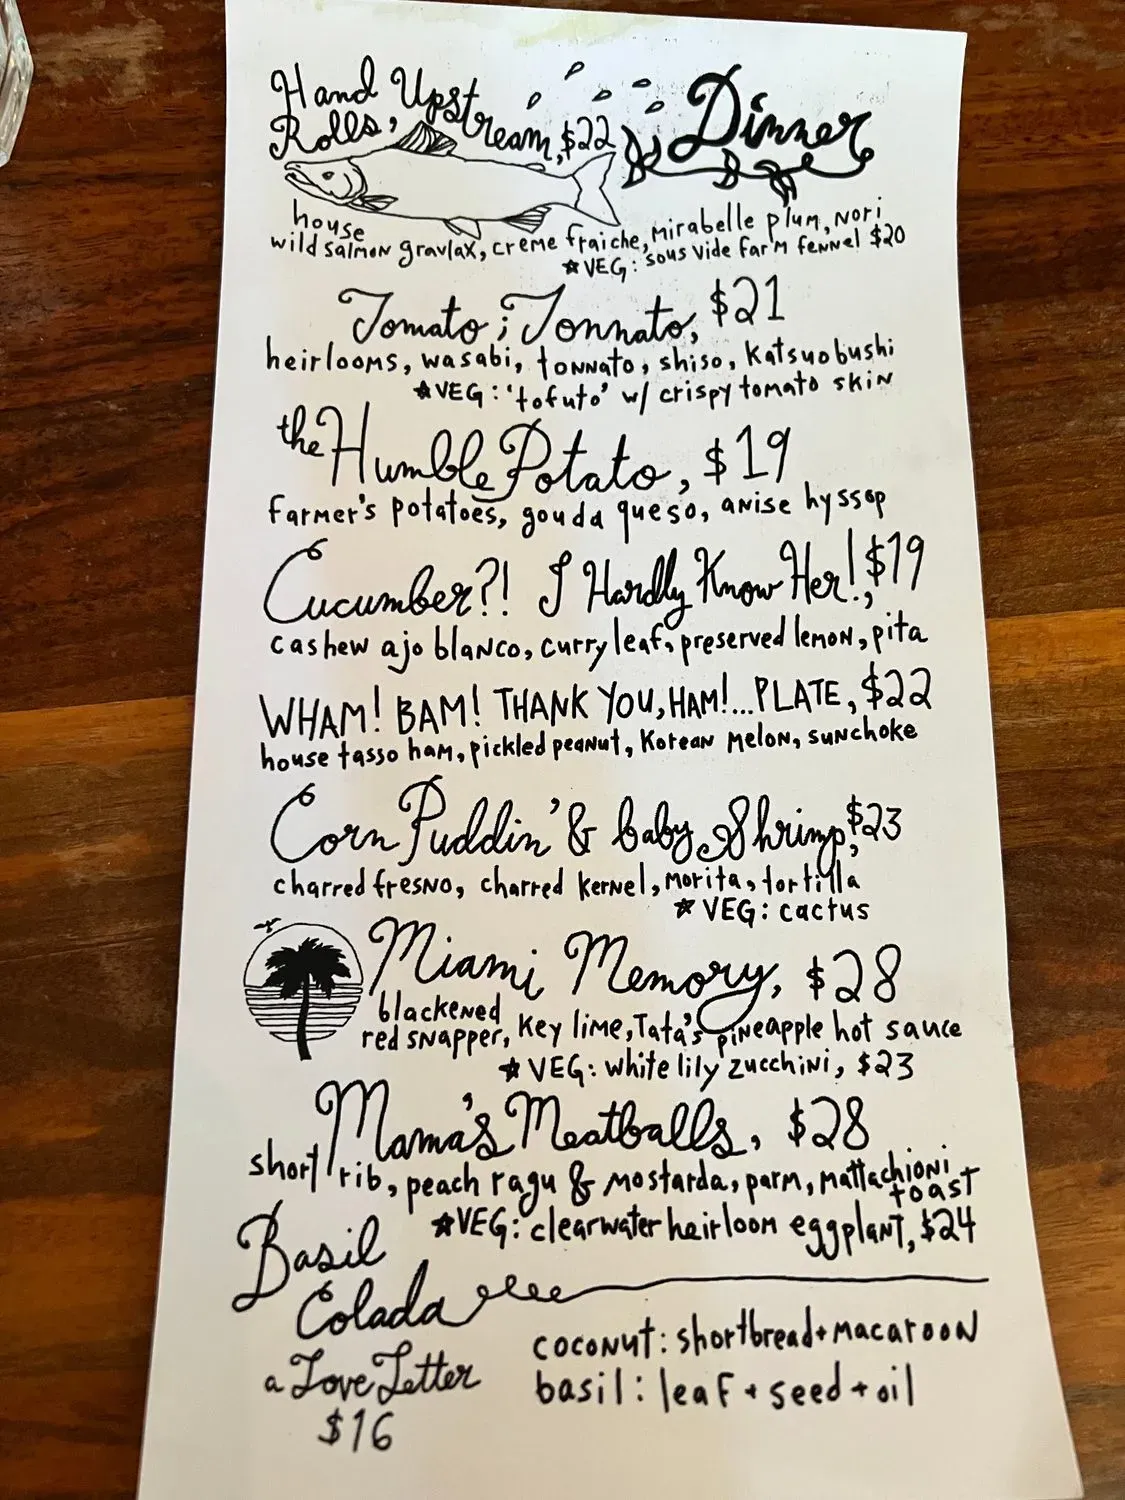 Hand Upstream, $22
Rolls,
Dinner
house
wild salmon gravlax, creme fraiche, mirabelle plum, nori
*VEG: sous vide farm fennel $20
Tomato; Tonnato, $21
heirlooms, wasabi, tonnato, shiso, katsuobushi
*VEG: 'tofuto' w/ crispy tomato skin
the Humble Potato, $19
farmer's potatoes, gouda queso, anise hyssop
Cucumber?! I Hardly Know Her!, $19
cashew ajo blanco, curry leaf, preserved lemon, pita
WHAM! BAM! THANK YOU, HAM!...PLATE, $22
house tasso ham, pickled peanut, Korean melon, sunchoke
Corn Puddin' & baby Shrimp, $23
charred fresno, charred kernel, morita, tortilla
*VEG: cactus
Miami Memory, $28
blackened
red snapper, key lime, Tata's pineapple hot sauce
*VEG: white lily zucchini, $23
Mama's Meatballs, $28
short rib, peach ragu & mostarda, parm, mattachioni
toast
*VEG: clearwater heirloom eggplant, $24
Basil
Colada
a Love Letter
$16
coconut: shortbread + macaroon
basil: leaf + seed + oil